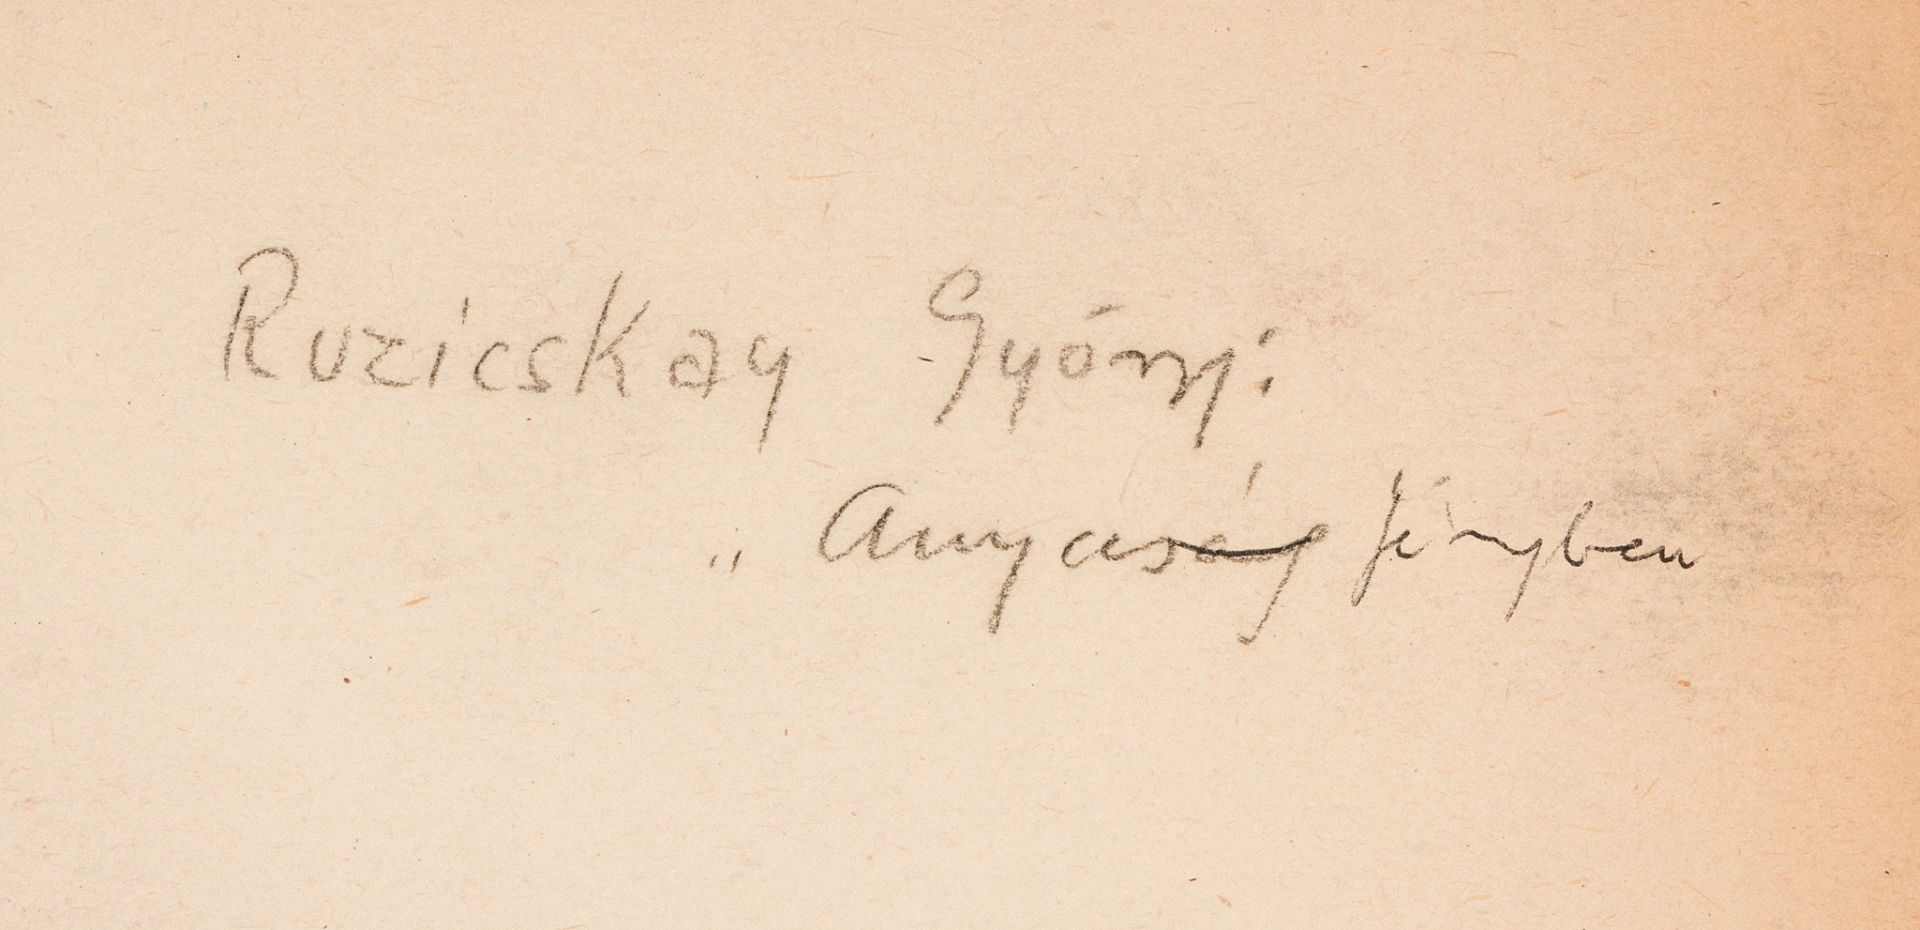 Ruzicskay György:
„Anyaság fényben